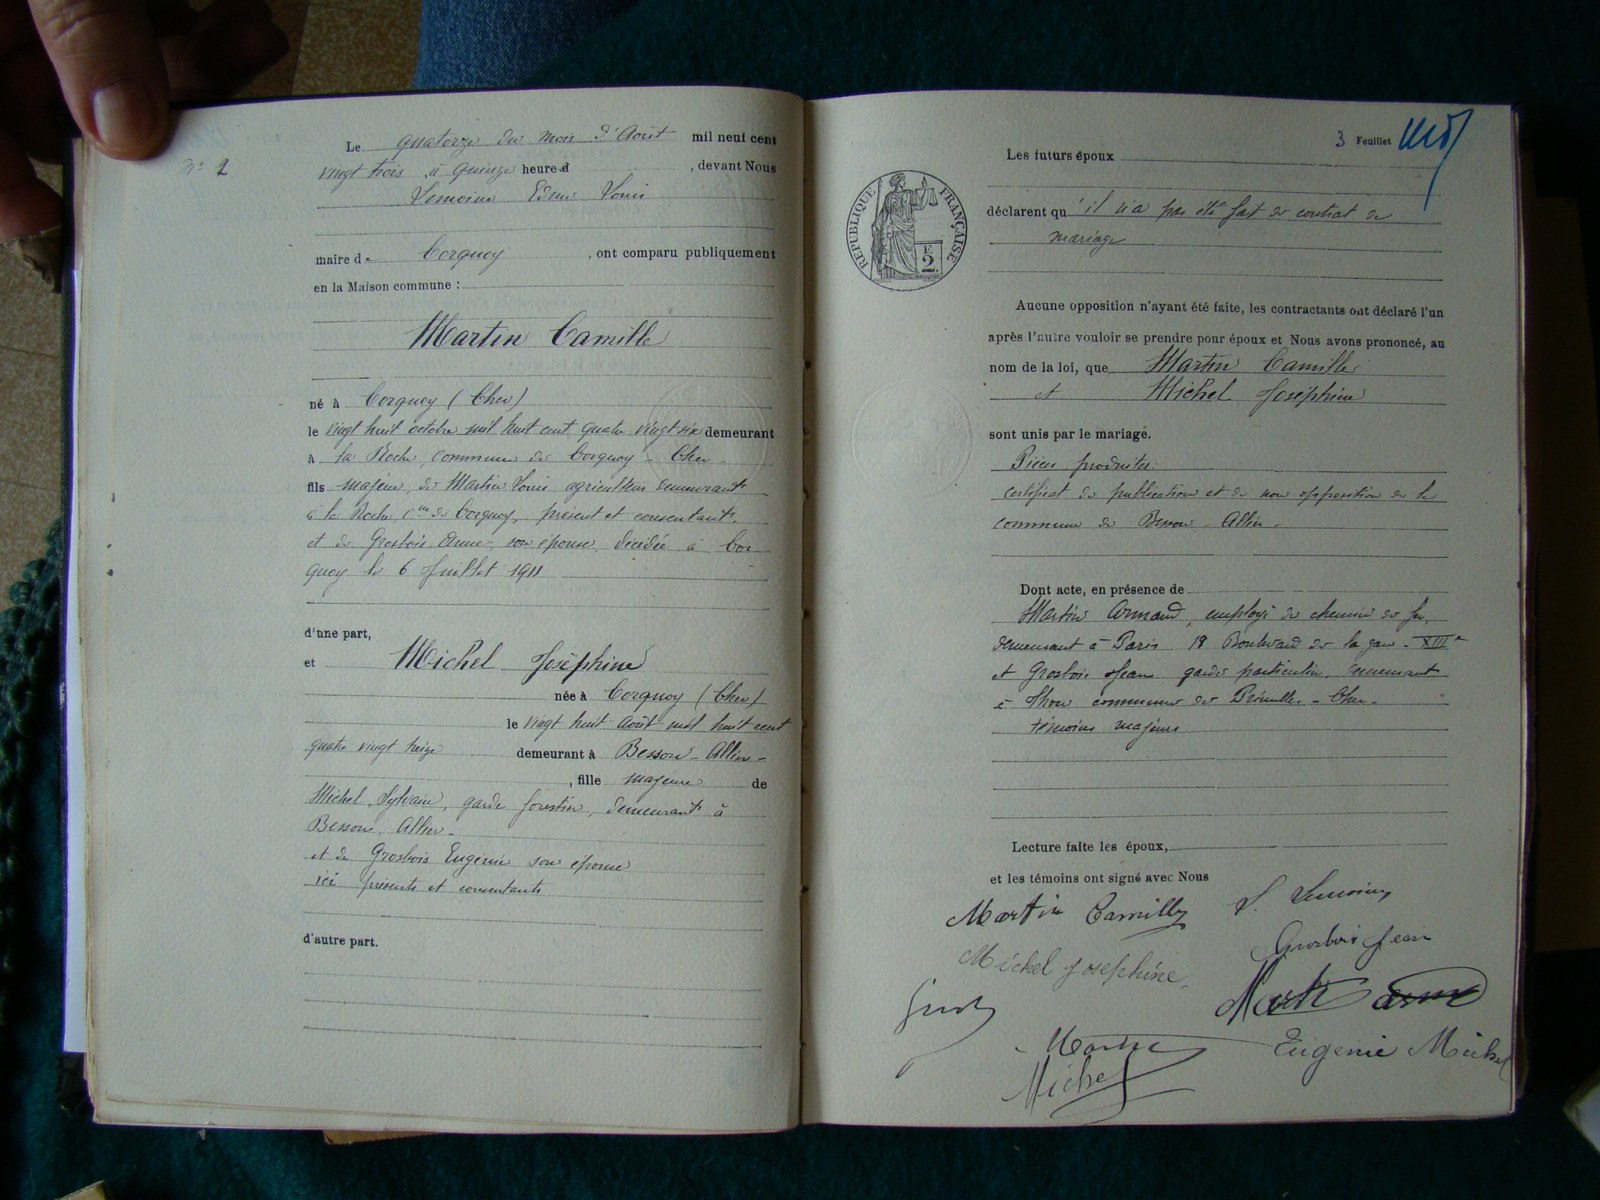 Le quatorze du mois d'Août mil neuf cent
vingt trois, à quinze heure d , devant Nous
Lemoine Louis
maire de Corquoy , ont comparu publiquement
en la Maison commune :
Martin Camille
né à Corquoy (Cher)
le vingt huit octobre mil huit cent quatre vingt six demeurant
à la Roche, commune de Corquoy - Cher -
fils majeur, de Martin Louis agriculteur demeurant
à la Roche cne de Corquoy, présent et consentant,
et de Grosbois Anne, son épouse, décédée à Cor
quoy le 6 Juillet 1911
d'une part,
et Michel Joséphine
née à Corquoy (Cher)
le vingt huit Août mil huit cent
quatre vingt treize demeurant à Besson - Allier -
, fille majeure de
Michel, Sylvain, garde forestier, demeurant à
Besson, Allier -
et de Grosbois Eugénie son épouse
ici présents et consentants
d'autre part.
3 Feuillet
Les futurs époux
RÉPUBLIQUE FRANÇAISE
F
2
déclarent qu'il n'a pas été fait de contrat de
mariage
Aucune opposition n'ayant été faite, les contractants ont déclaré l'un
après l'autre vouloir se prendre pour époux et Nous avons prononcé, au
nom de la loi, que Martin Camille
et Michel Joséphine
sont unis par le mariage.
Pièces produites :
certificat de publication et de non opposition de la
commune de Besson - Allier -
Dont acte, en présence de
Martin Armand, employé de chemin de fer,
demeurant à Paris 18 Boulevard de la gare - XIIIe
et Grosbois Jean garde particulier, demeurant
à commune de - Cher -
témoins majeurs
Lecture faite les époux,
et les témoins ont signé avec Nous
Martin Camille L. Lemoine
Grosbois Jean
Michel Joséphine
Martin
Martin
Eugenie Michel
Michel